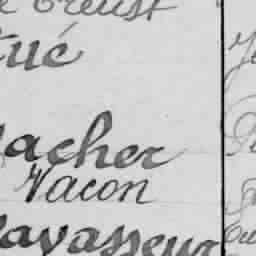 e Creust
tué
acher
Vacon
avasseur